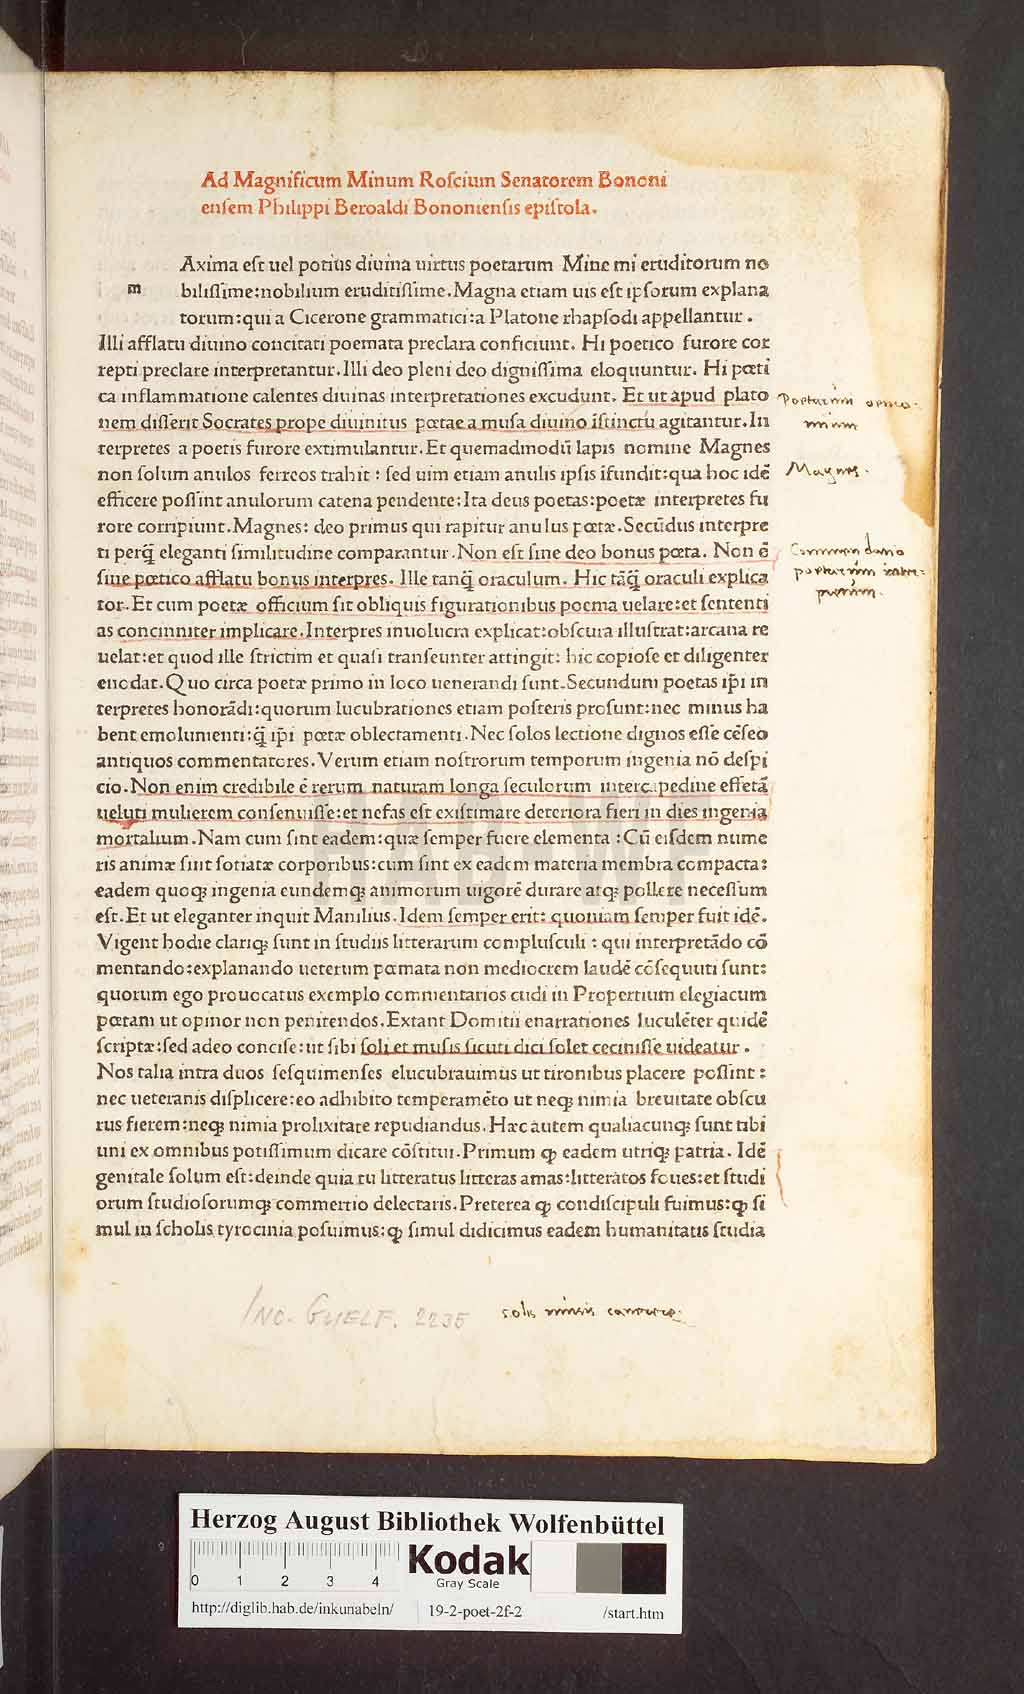 Ad Magnificum Minum Roſcium Senatorem Bononi
enſem Philippi Beroaldi Bononienſis epiſtola.
Axima eſt uel potius diuina uirtus poetarum Mine mi eruditorum no
m biliſſime:nobilium eruditiſſime.Magna etiam uis eſt ipſorum explana
torum:qui a Cicerone grammatici:a Platone rhapſodi appellantur.
Illi afflatu diuino concitati poemata preclara conficiunt. Hi poetico furore cor
repti preclare interpretantur.Illi deo pleni deo digniſſima eloquuntur. Hi pœti
ca inflammatione calentes diuinas interpretationes excudunt. Et ut apud plato
nem diſſerit Socrates prope diuinitus pœtae a muſa diuino īſtinctu agitantur.In
terpretes a poetis furore extimulantur.Et quemadmodū lapis nomine Magnes
non ſolum anulos ferreos trahit: ſed uim etiam anulis ipſis īfundit:qua hoc idē
efficere poſſint anulorum catena pendente:Ita deus poetas:poetæ interpretes fu
rore corripiunt.Magnes: deo primus qui rapitur anulus pœtæ.Secūdus interpre
ti perq̄ eleganti ſimilitudine comparantur.Non eſt ſine deo bonus pœta. Non ē
ſine pœtico afflatu bonus interpres. Ille tanq̄ oraculum. Hic tāq̄ oraculi explica
tor.Et cum poetæ officium ſit obliquis figurationibus poema uelare:et ſententi
as concinniter implicare.Interpres inuolucra explicat:obſcura illuſtrat:arcana re
uelat:et quod ille ſtrictim et quaſi tranſeunter attingit: hic copioſe et diligenter
enodat.Quo circa poetæ primo in loco uenerandi ſunt.Secundum poetas ip̄i in
terpretes honorādi:quorum lucubrationes etiam poſteris proſunt:nec minus ha
bent emolumenti:q̄ ip̄i pœtæ oblectamenti.Nec ſolos lectione dignos eſſe cēſeo
antiquos commentatores.Verum etiam noſtrorum temporum ingenia nō deſpi
cio.Non enim credibile ē rerum naturam longa ſeculorum intercapedine effetā
ueluti mulierem conſenuiſſe:et nefas eſt exiſtimare deteriora fieri in dies ingenia
mortalium.Nam cum ſint eadem:quæ ſemper fuere elementa:Cū eiſdem nume
ris animæ ſint ſotiatæ corporibus:cum ſint ex eadem materia membra compacta:
eadem quoq; ingenia eundemq; animorum uigorē durare atq; pollere neceſſum
eſt.Et ut eleganter inquit Manilius.Idem ſemper erit: quoniam ſemper fuit idē.
Vigent hodie clariq; ſunt in ſtudiis litterarum compluſculi: qui interpretādo cō
mentando:explanando ueterum pœmata non mediocrem laudē cōſequuti ſunt:
quorum ego prouocatus exemplo commentarios cudi in Propertium elegiacum
pœtam ut opinor non penitendos.Extant Domitii enarrationes luculēter quidē
ſcriptæ:ſed adeo conciſe:ut ſibi ſoli et muſis ſicuti dici ſolet ceciniſſe uideatur.
Nos talia intra duos ſeſquimenſes elucubrauimus ut tironibus placere poſſint:
nec ueteranis diſplicere:eo adhibito temperamēto ut neq; nimia breuitate obſcu
rus fierem:neq; nimia prolixitate repudiandus.Hæc autem qualiacunq; ſunt tibi
uni ex omnibus potiſſimum dicare cōſtitui.Primum ꝙ eadem utriq; patria. Idē
genitale ſolum eſt:deinde quia tu litteratus litteras amas:litteratos foues:et ſtudi
orum ſtudioſorumq; commertio delectaris.Preterea ꝙ condiſcipuli fuimus:ꝙ ſi
mul in ſcholis tyrocinia poſuimus:ꝙ ſimul didicimus eadem humanitatis ſtudia
Magnes.
Commendatio
INC. GUELF. 2235
solis musis canere.
HAB-WF
Herzog August Bibliothek Wolfenbüttel
0 1 2 3 4
Kodak
Gray Scale
http://diglib.hab.de/inkunabeln/ 19-2-poet-2f-2 /start.htm